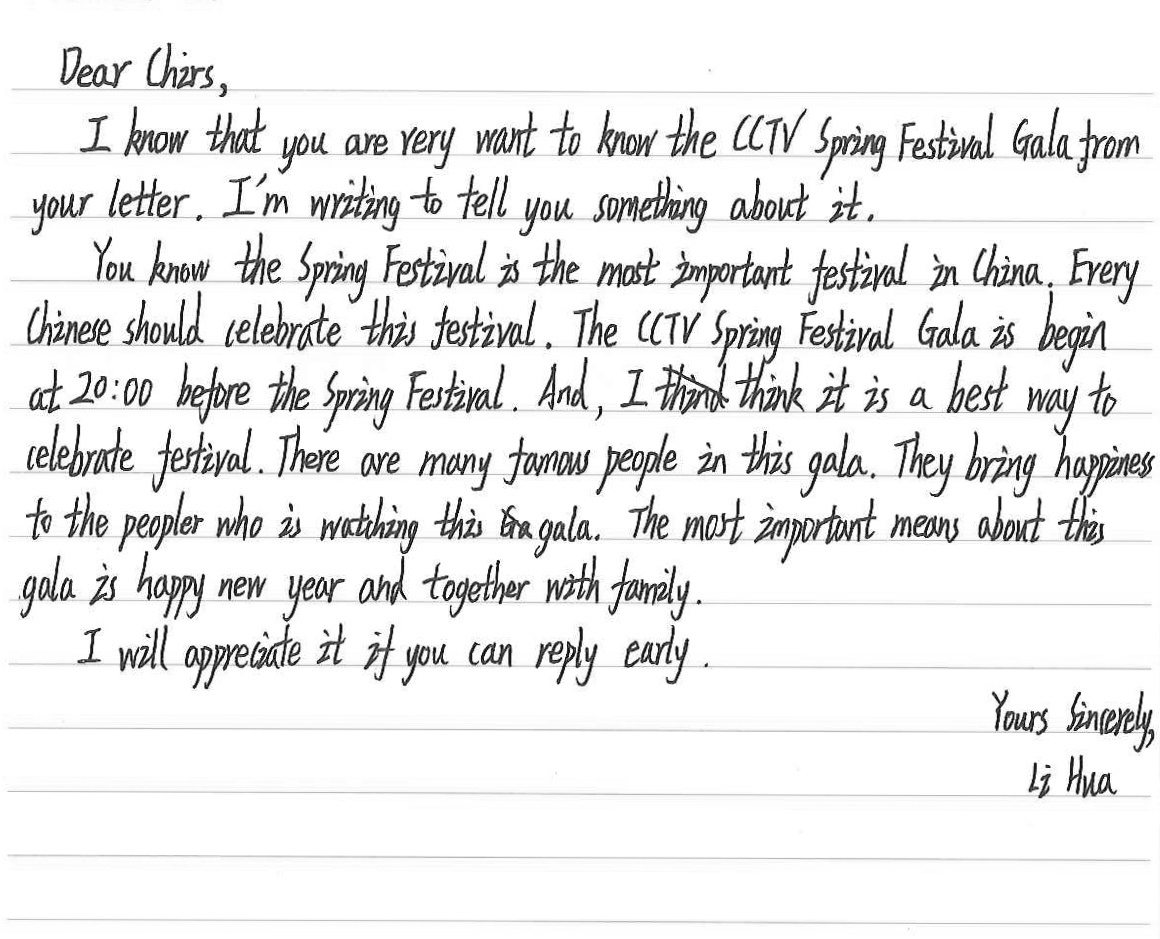 Dear Chirs,
I know that you are very want to know the CCTV Spring Festival Gala from
your letter. I'm writing to tell you something about it.
You know the Spring Festival is the most important festival in China. Every
Chinese should celebrate this festival. The CCTV Spring Festival Gala is begin
at 20:00 before the Spring Festival. And, I think it is a best way to
celebrate festival. There are many famous people in this gala. They bring happiness
to the peopler who is watching this gala. The most important means about this
gala is happy new year and together with family.
I will appreciate it if you can reply early.
Yours Sincerely,
Li Hua